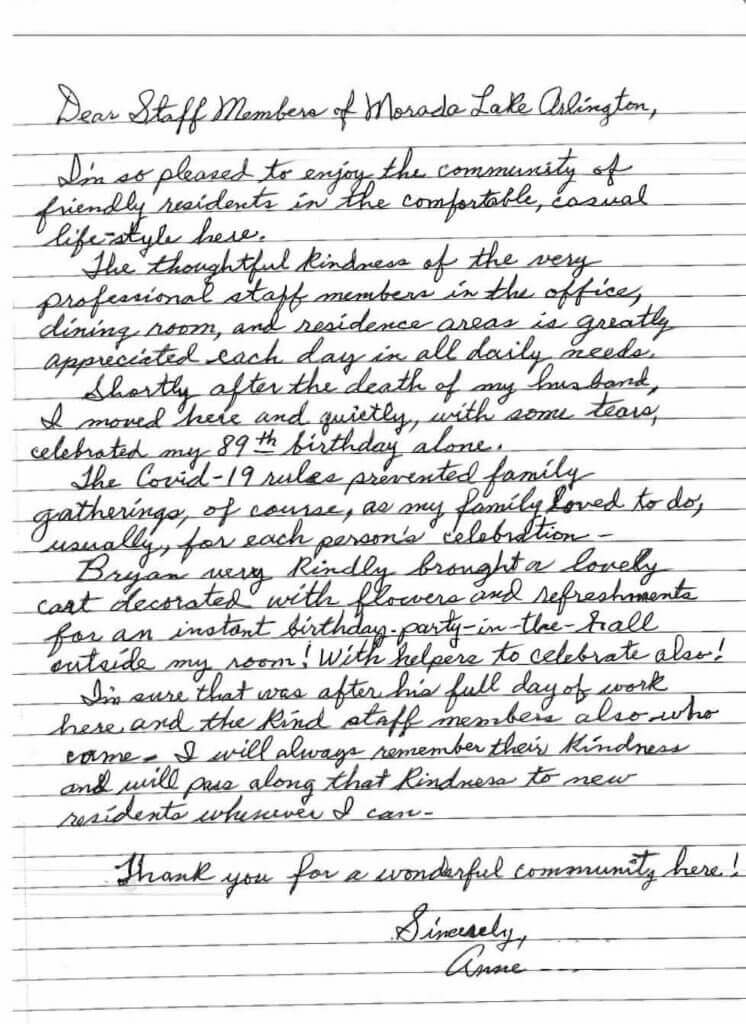 Dear Staff Members of Morada Lake Arlington,
I'm so pleased to enjoy the community of
friendly residents in the comfortable, casual
life-style here.
The thoughtful kindness of the very
professional staff members in the office,
dining room, and residence areas is greatly
appreciated each day in all daily needs.
Shortly after the death of my husband,
I moved here and quietly, with some tears,
celebrated my 89th birthday alone.
The Covid-19 rules prevented family
gatherings, of course, as my family loved to do,
usually, for each person's celebration -
Bryan very kindly brought a lovely
cart decorated with flowers and refreshments
for an instant birthday-party-in-the-hall
outside my room! With helpers to celebrate also!
I'm sure that was after his full day of work
here, and the kind staff members also who
came - I will always remember their kindness
and will pass along that kindness to new
residents whenever I can -
Thank you for a wonderful community here!
Sincerely,
Anne ---